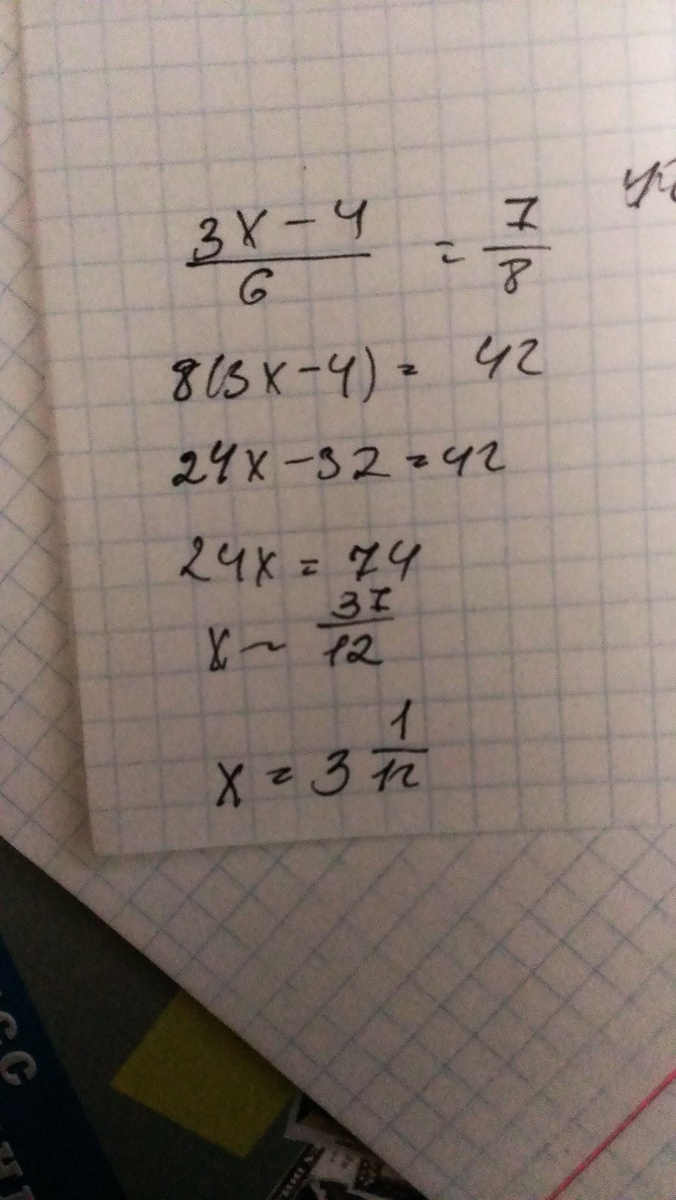 3x-4/6 = 7/8
8(3x-4) = 42
24x-32=42
24x = 74
x = 37/12
x = 3 1/12